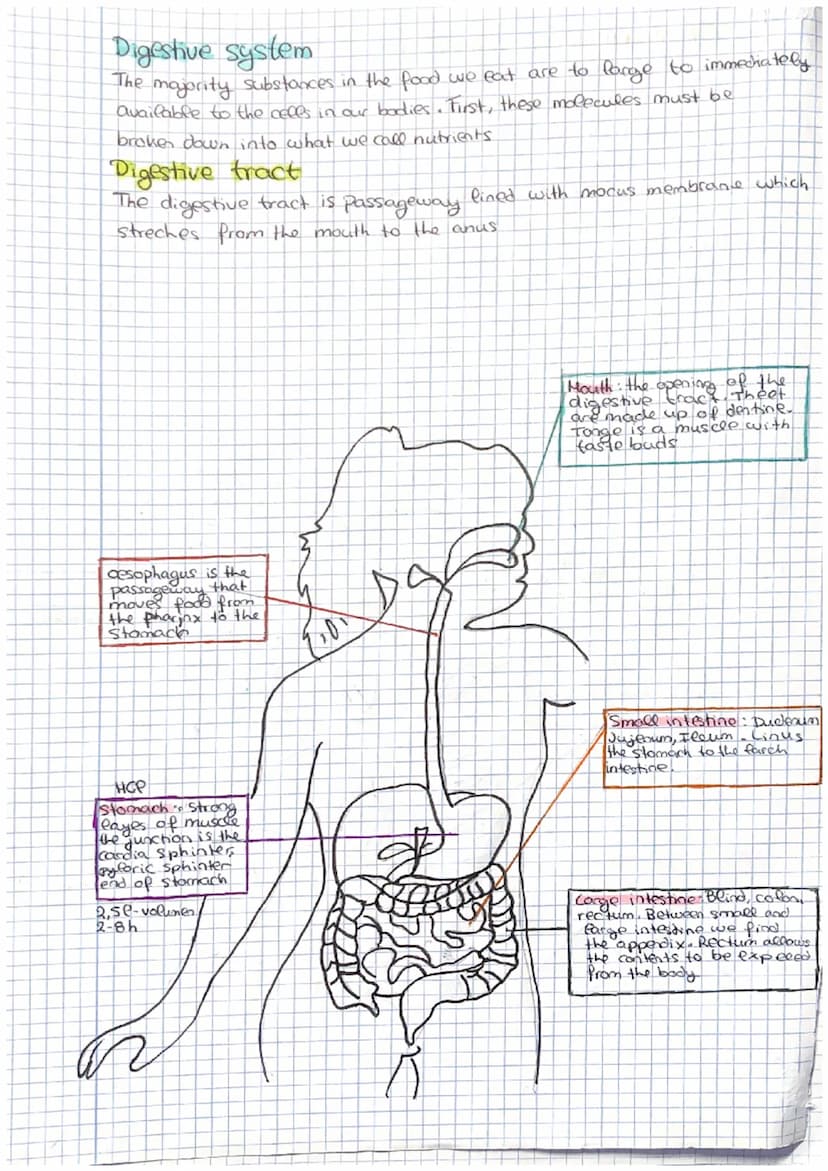 Digestive system
The majority substances in the food we eat are to large to immediately
available to the cells in our bodies. First, these molecules must be
broken down into what we call nutrients
Digestive tract
The digestive tract is passageway lined with mocus membrane which
streches from the mouth to the anus
Mouth: the opening of the
digestive tract. Theet
are made up of dentine.
Tonge is a muscle with
taste buds
oesophagus is the
passageway that
moves food from
the pharjnx to the
stomach
Small intestine: Duodenum
Jujenum, Ileum. Linus
the stomach to the
intestine.
HCP
Stomach: Strong
layes of muscle
the junction is the
cardia sphinter,
pyloric sphinter
end of stomach
2,5l-volumen
2-8h
Large intestine: Blind, colon,
rectum. Between small and
large intestine we find
the appendix. Rectum allows
the contents to be expeeed
from the body